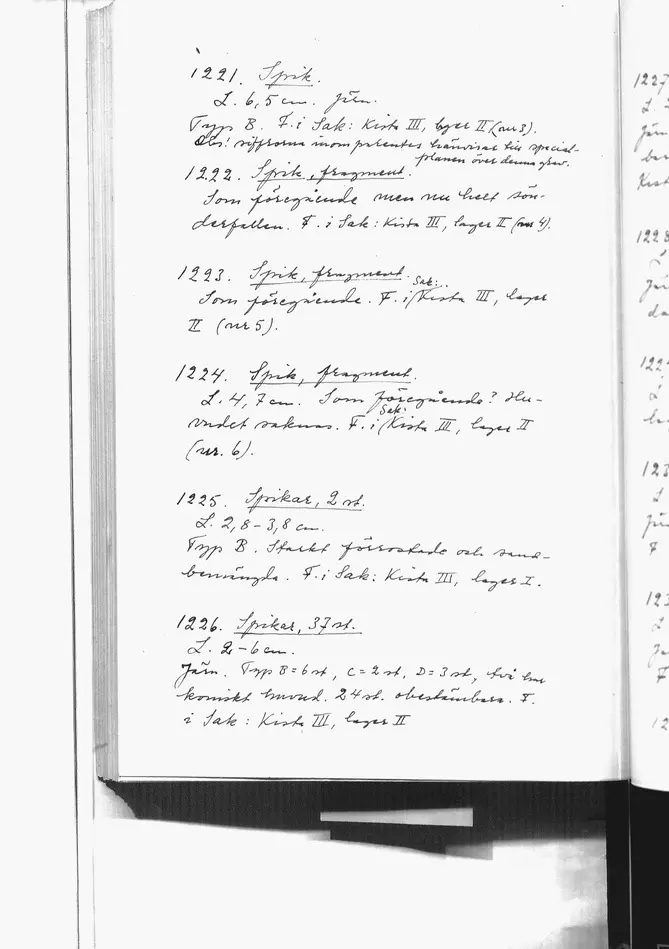 1221. Spik.
L. 6,5 cm. Järn.
Typ B. F. i Sak: Kista III, lager II (nr 3).
Obs! siffrorna inom parentes hänvisar till special-
planen över denna grav.
1222. Spik, fragment.
Som föregående men nu helt sön-
derfallen. F. i Sak: Kista III, lager II (nr 4).
1223. Spik, fragment.
Som föregående. F. i Sak: Kista III, lager
II (nr 5).
1224. Spik, fragment.
L. 4,7 cm. Som föregående? Hu-
vudet saknas. F. i Sak: Kista III, lager II
(nr. 6).
1225. Spikar, 2 st.
L. 2,8-3,8 cm.
Typ B. Starkt förrostade och sand-
bemängda. F. i Sak: Kista III, lager I.
1226. Spikar, 37 st.
L. 2-6 cm.
Järn. Typ B=6 st, C=2 st, D=3 st, två har
koniskt huvud. 24 st. obestämbara. F.
i Sak: Kista III, lager II
1227
L.
Järn
Kist
1228